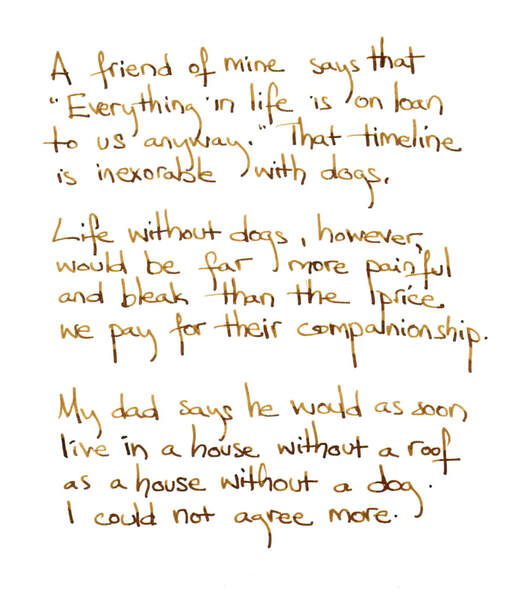 A friend of mine says that
"Everything in life is on loan
to us anyway." That timeline
is inexorable with dogs.
Life without dogs, however,
would be far more painful
and bleak than the price
we pay for their companionship.
My dad says he would as soon
live in a house without a roof
as a house without a dog.
I could not agree more.